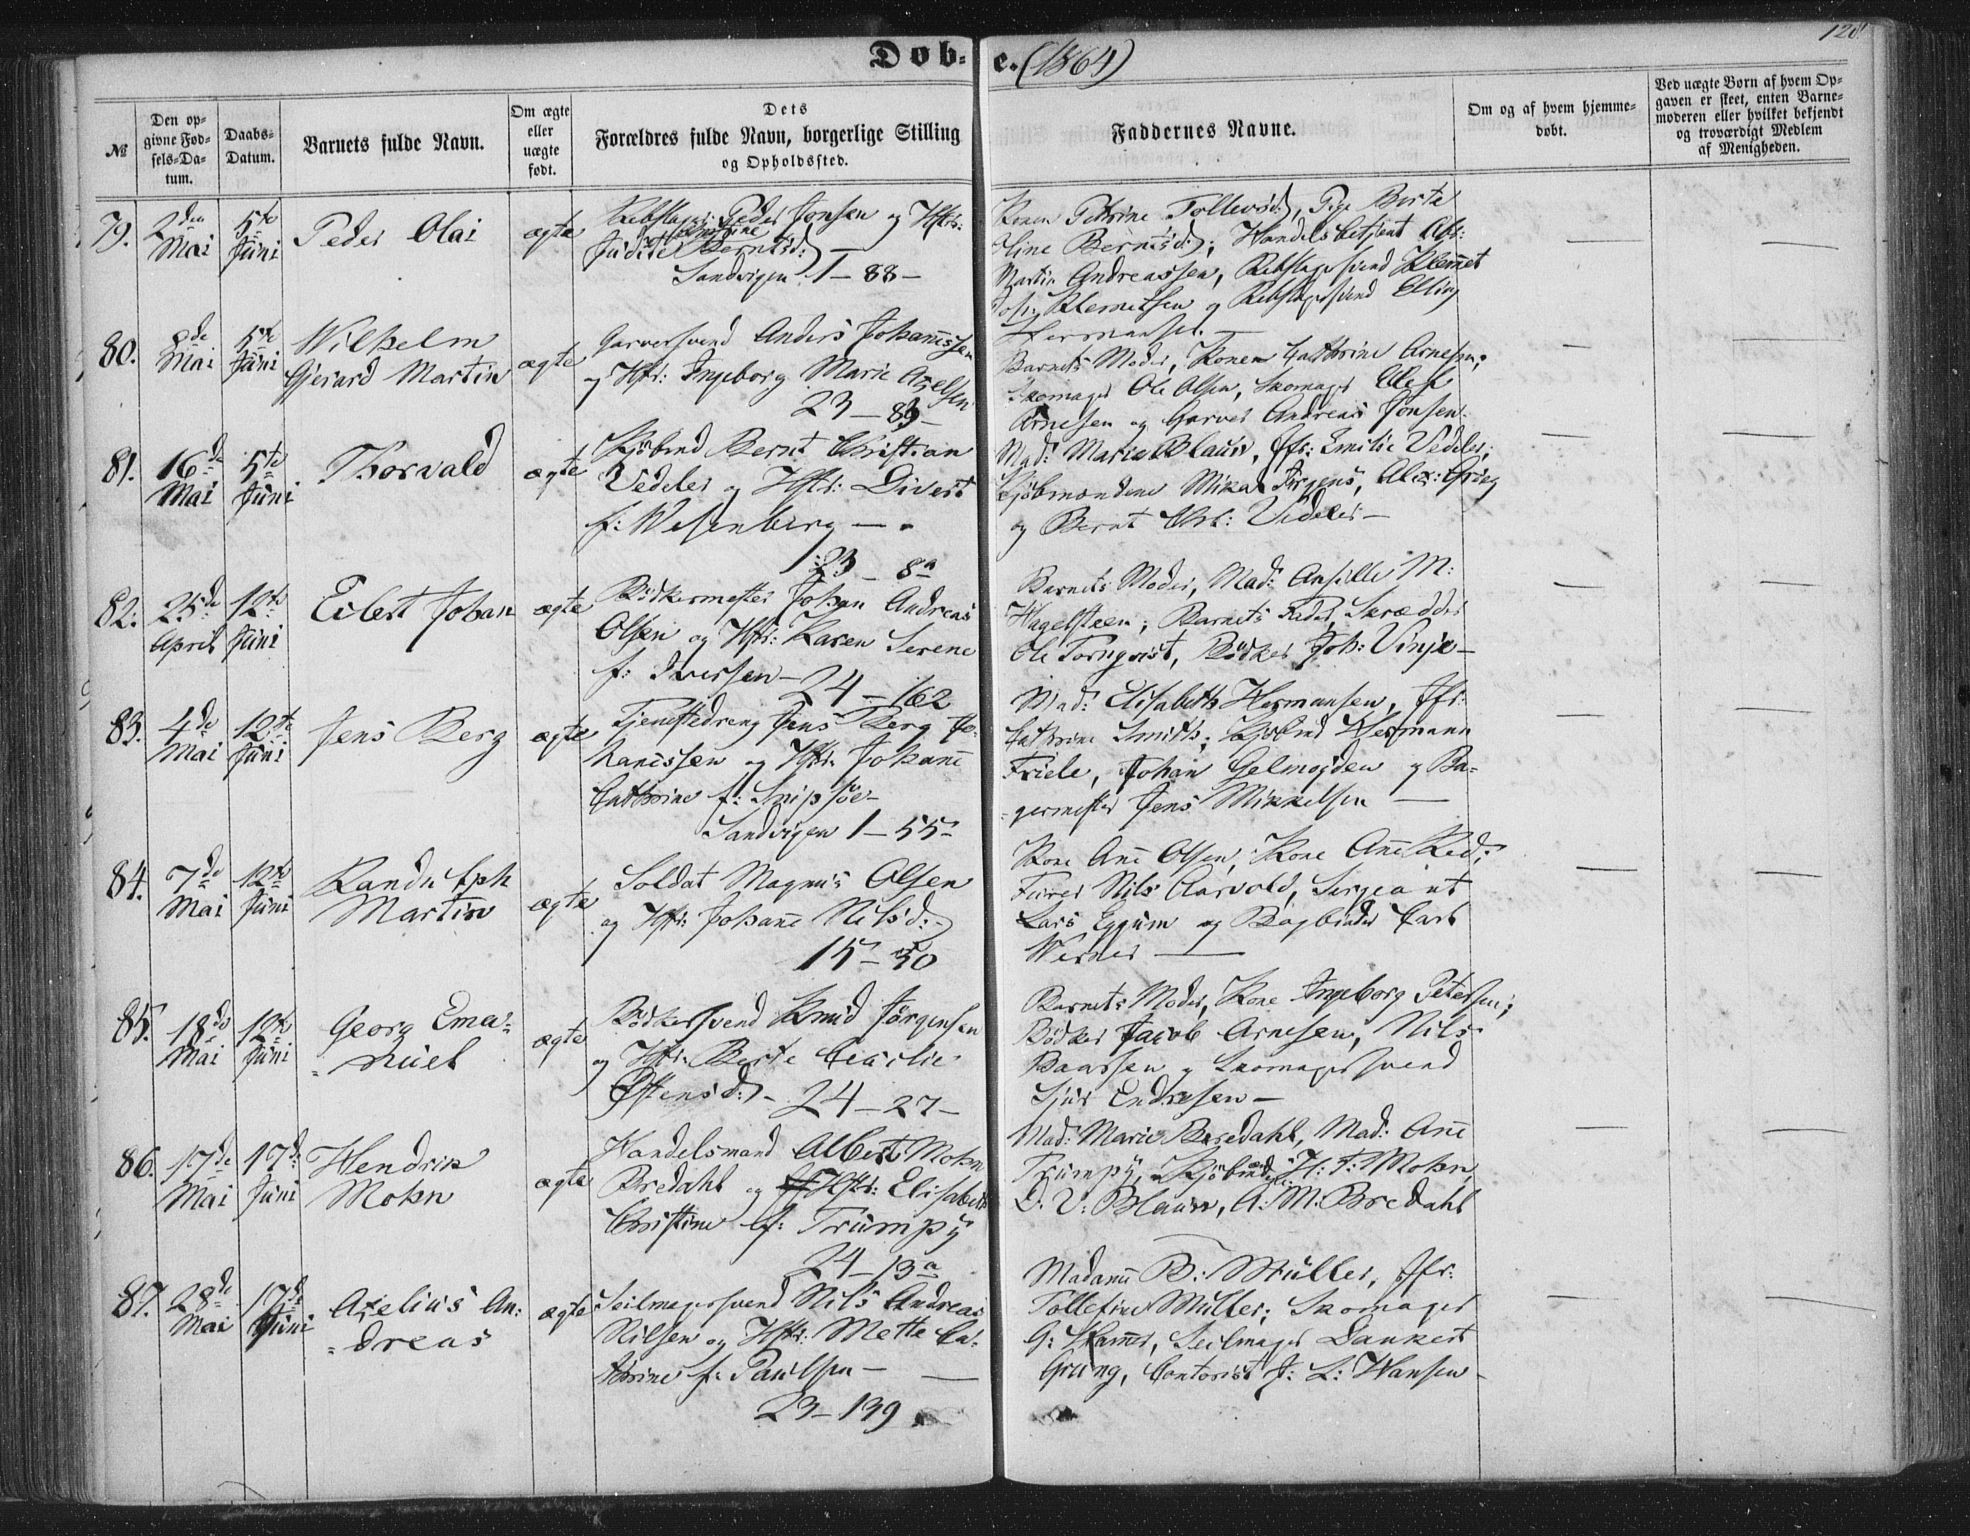 Døb- e. (1864)
№
Den op-
givne Fød-
sels-Da-
tum.
Daabs-
Datum.
Barnets fulde Navn.
Om ægte
eller
uægte
født.
Dets
Forældres fulde Navn, borgerlige Stilling
og Opholdssted.
Faddernes Navne.
Om og af hvem hjemme-
døbt.
Ved uægte Børn af hvem Op-
gaven er skeet, enten Barne-
moderen eller hvilket bekjendt
og troværdigt Medlem
af Menigheden.
79. 2den Mai
5te Juni
Peder Olai
ægte
Rebslager: Peder Jonsen og Hstr:
Berntsd:
Sandvigen 1 – 88 –
Konen Petrine Tollevsd:, Pige Berte
Oline Berntsd:; Handelsbetjent Abr:
Martin Andreassen, Rebslagersvend Klemet
Joh: Klemetsen og Rebslagersvend Elling
Hermansen. –
80. 8de Mai
5te Juni
Wilhelm
Gjerard Martin
ægte
Garversvend Anders Johannessen
og Hstr: Ingeborg Marie Axelsen
23 – 83 –
Barnets Moder, Konen Cathrine Arnesen;
Skomager Ole Olsen, Skomager Ellef
Arnesen og Garver Andreas Jonsen.
81. 16de Mai
5te Juni
Thorvald
ægte
Kjøbmd Bernt Christian
Vedeler og Hstr: Divert
f: Wesenberg –
23 – 8a
Mad: Marie Blauw, Jfr: Emilie Vedeler;
Kjøbmændene Mikal Jürgens, Alex: Grieg
og Bernt Chr: Vedeler –
82. 25de April
12te Juni
Eilert Johan
ægte
Bødkermester Johan Andreas
Olsen og Hstr: Karen Serene
f: Iversen – 24 – 162
Barnets Moder, Mad: Ansille M:
Hagelsteen; Barnets Fader, Skrædder
Ole Tornqvist, Bødker Joh: Vinje –
83. 4de Mai
12te Juni
Jens Berg
ægte
Tjenestedreng Jens Berg Jo-
hanessen og Hstr: Johanne
Cathrine f: Snipsøe –
Sandvigen 1 – 55 –
Mad: Elisabeth Hermansen, Jfr:
Cathrine Smith; Kjøbmd Hermann
Friele, Johan Gelmeyden og Ba-
germester Jens Mikkelsen –
84. 7de Mai
12te Juni
Randulph
Martin
ægte
Soldat Magnus Olsen
og Hstr: Johanne Nilsd:
15 – 30
Kone Anne Olsen, Kone Anne Red;
Furer Nils Aarvold, Sergeant
Lars Eggum og Bogbinder Carl
Werner –
85. 18de Mai
12te Juni
Georg Ema-
nuel
ægte
Bødkersvend Knud Jørgensen
og Hstr: Berte Cecilie
Østensd: – 24 – 27 –
Barnets Moder, Kone Ingeborg Petersen;
Bødker Jacob Arnesen, Nils
Baarsen og Skomagersvend
Sjur Endresen –
86. 17de Mai
17de Juni
Hendrik
Mohn
ægte
Handelsmand Albert Mohn
Bredahl og Hstr: Elisabeth
Christine f: Trumpy
24 – 13a
Mad: Marie Bredahl, Mad: Anne
Trumpy, Kjøbmd H: F: Mohn,
D: V: Blauw, A: M: Bredahl
87. 28de Mai
17de Juni
Axelius An-
dreas
ægte
Seilmagersvend Nils Andreas
Nilsen og Hstr: Mette Ca-
thrine f: Paulsen –
23 – 139
Madame B: Müller, Jfr:
Tollefine Müller; Skomager
G: Hammer, Seilmager Dankert
Grung, Contorist J: L: Hansen –